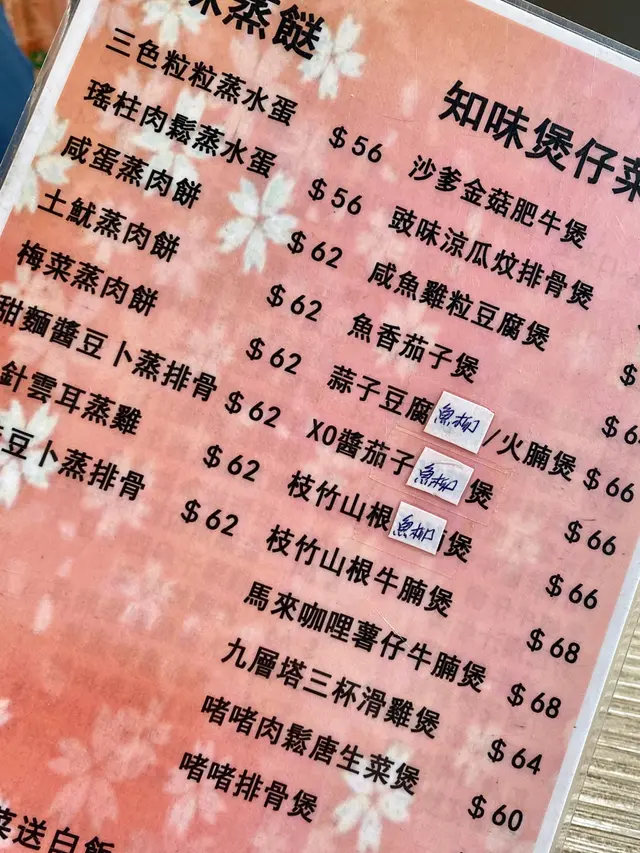 味蒸餸
三色粒粒蒸水蛋 $56
瑤柱肉鬆蒸水蛋 $56
咸蛋蒸肉餅 $62
土魷蒸肉餅 $62
梅菜蒸肉餅 $62
甜麵醬豆卜蒸排骨 $62
針雲耳蒸雞 $62
豆卜蒸排骨 $62
菜送白飯
知味煲仔菜
沙爹金菇肥牛煲
豉味涼瓜炆排骨煲
咸魚雞粒豆腐煲 $
魚香茄子煲 $6
蒜子豆腐魚柳/火腩煲 $66
XO醬茄子魚柳煲 $66
枝竹山根魚柳煲 $66
枝竹山根牛腩煲 $68
馬來咖哩薯仔牛腩煲 $68
九層塔三杯滑雞煲 $64
啫啫肉鬆唐生菜煲 $60
啫啫排骨煲